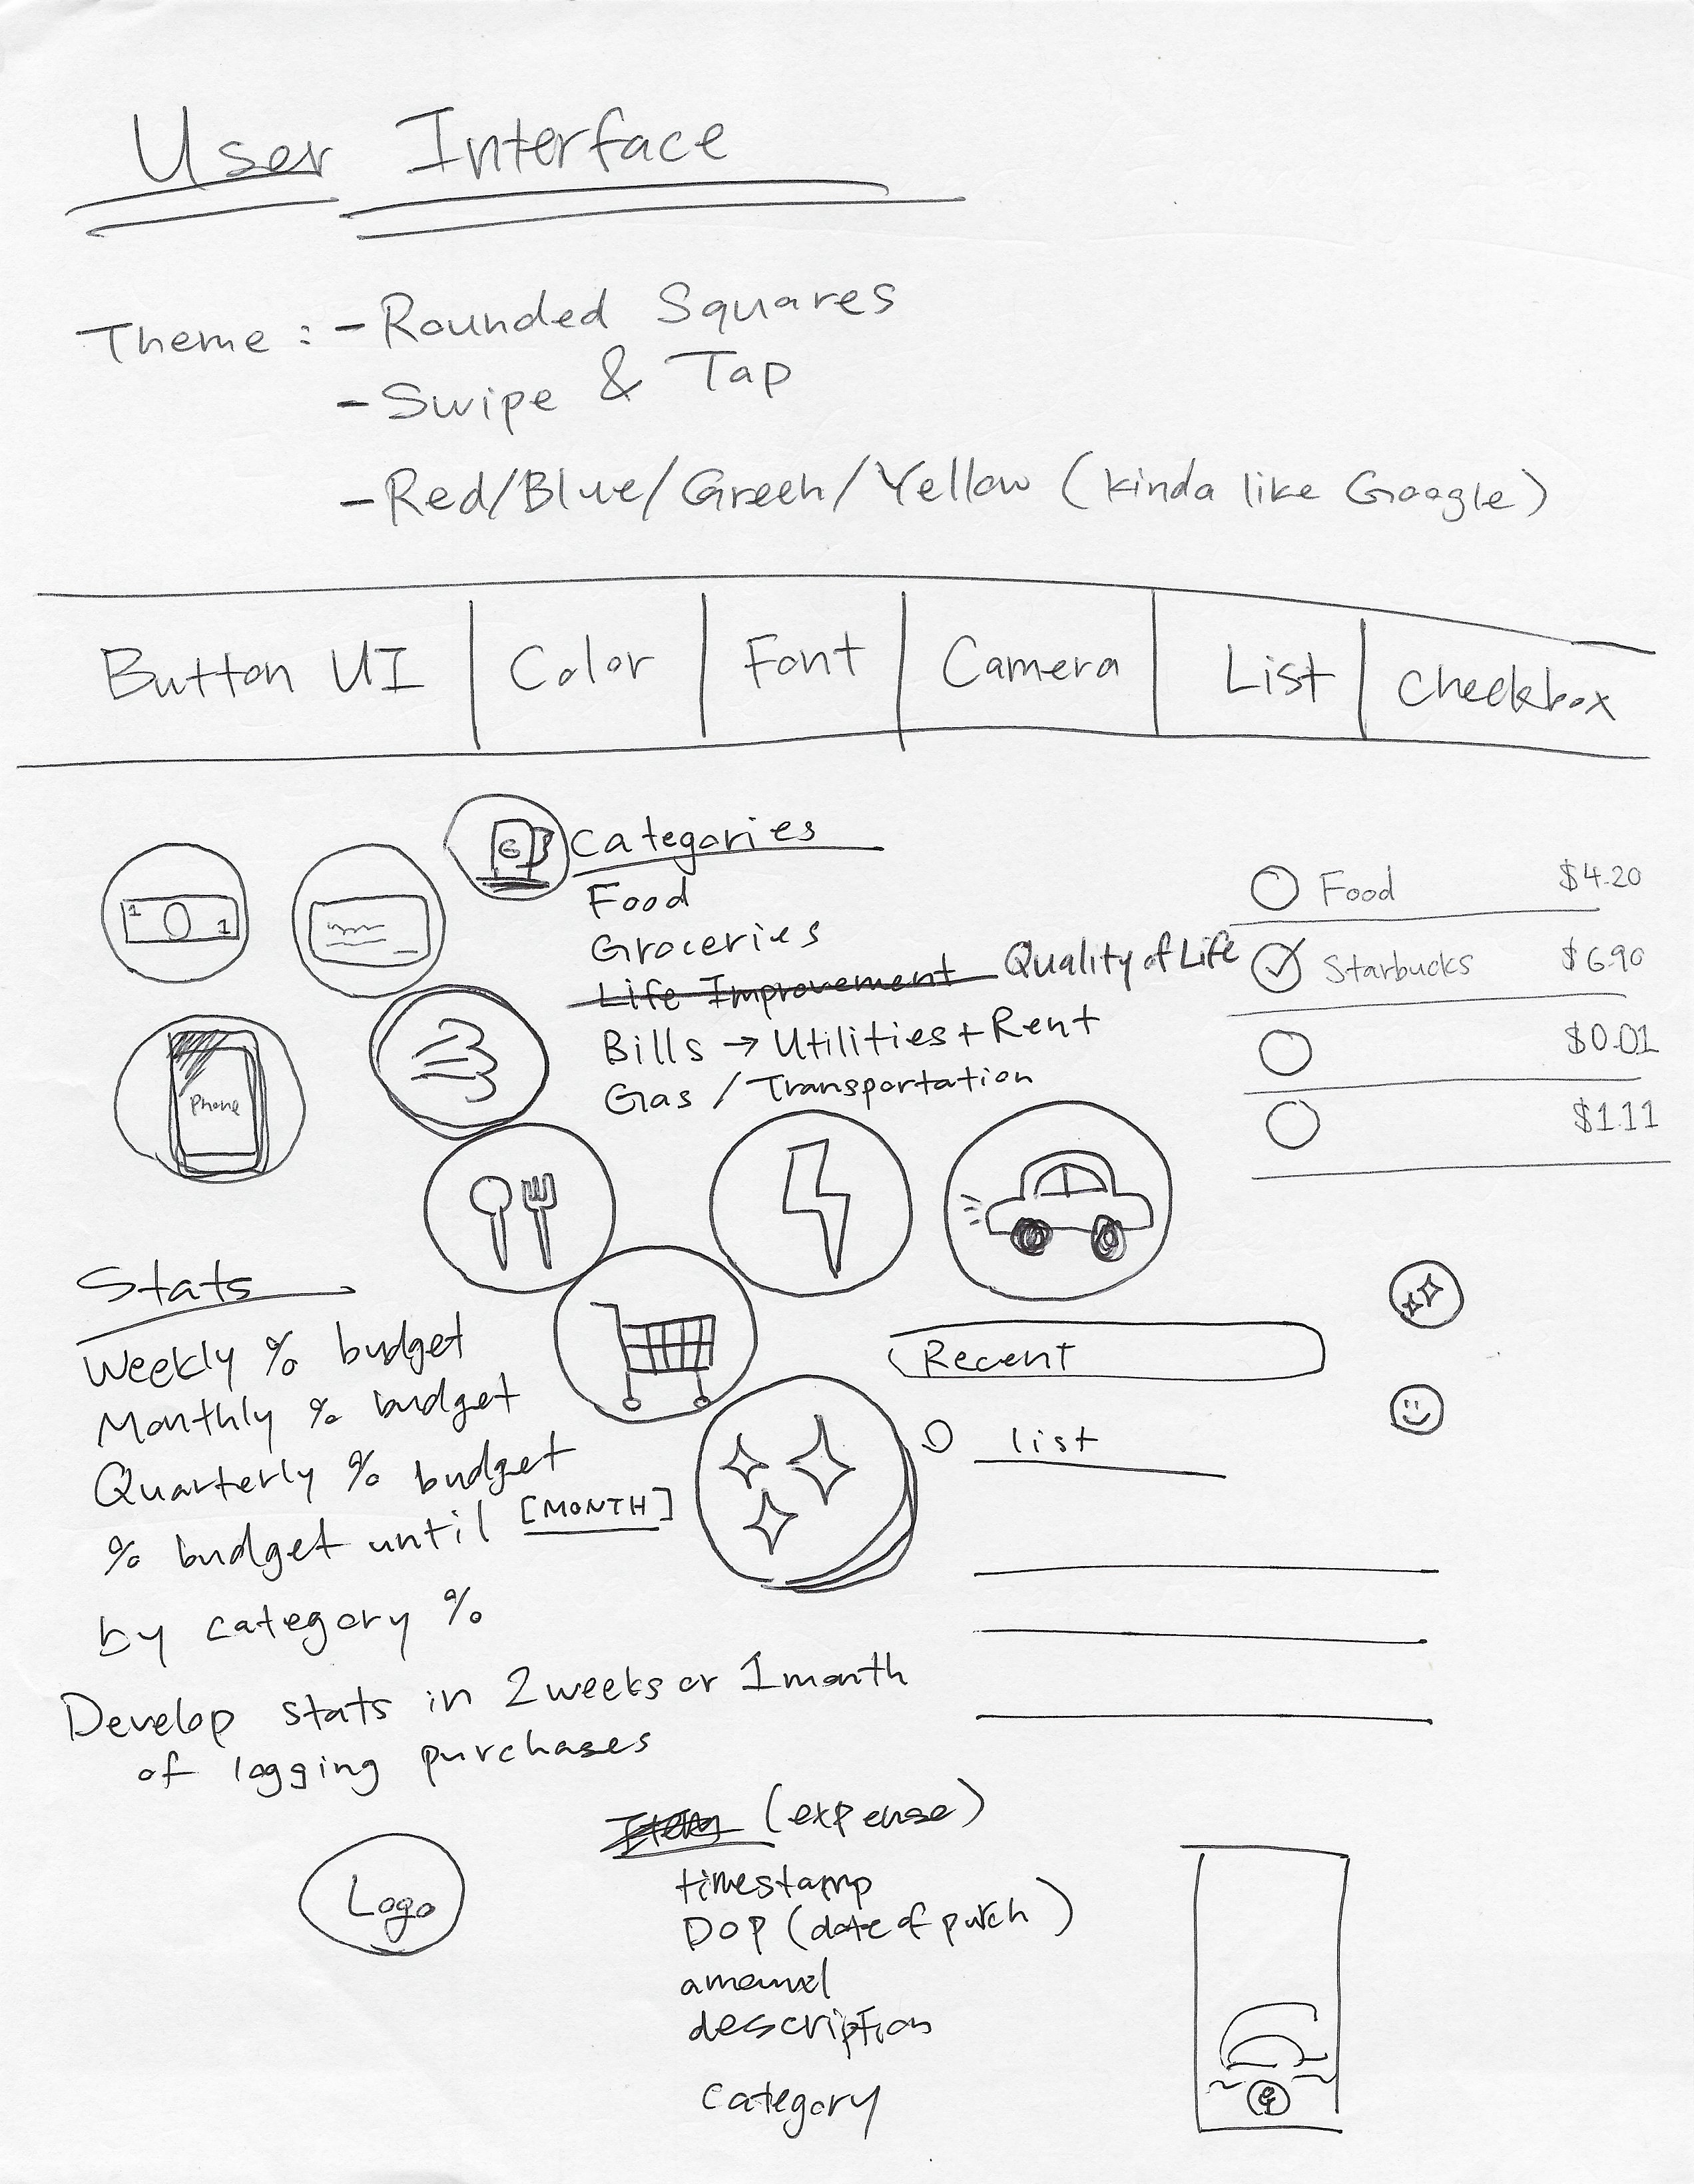 User Interface
Theme : - Rounded Squares
- Swipe & Tap
- Red/Blue/Green/Yellow (kinda like Google)
Button UI | Color | Font | Camera | List | Checkbox
G
Categories
Food
Groceries
Life Improvement Quality of Life
Bills → Utilities + Rent
Gas / Transportation
1 1
Phone
Food $4.20
Starbucks $6.90
$0.01
$1.11
Stats
Weekly % budget
Monthly % budget
Quarterly % budget
% budget until [MONTH]
by category %
Develop stats in 2 weeks or 1 month
of logging purchases
Recent
list
Logo
(expense)
timestamp
DOP (date of purch)
amount
description
category